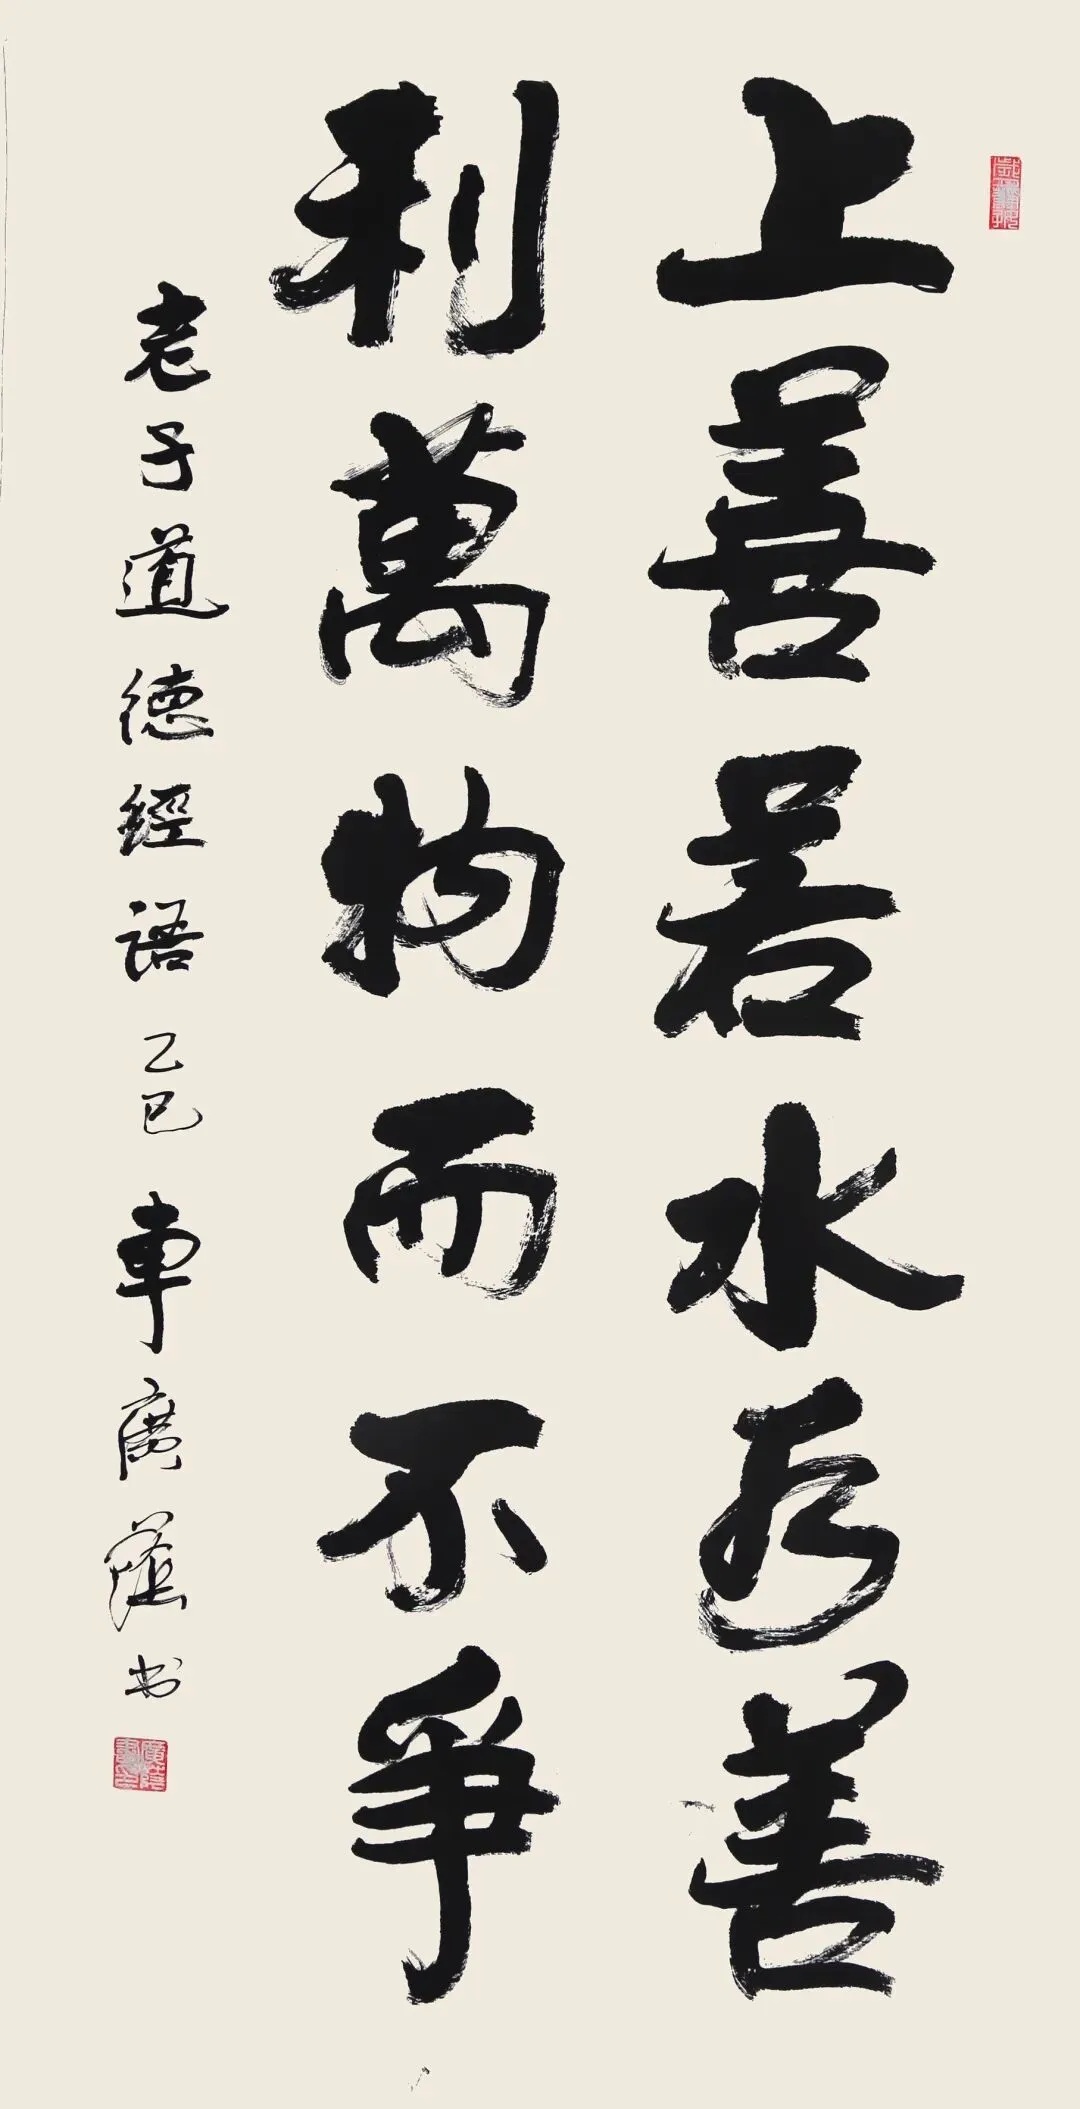 上善若水水善
利萬物而不爭
老子道德經語乙巳車廣蔭书